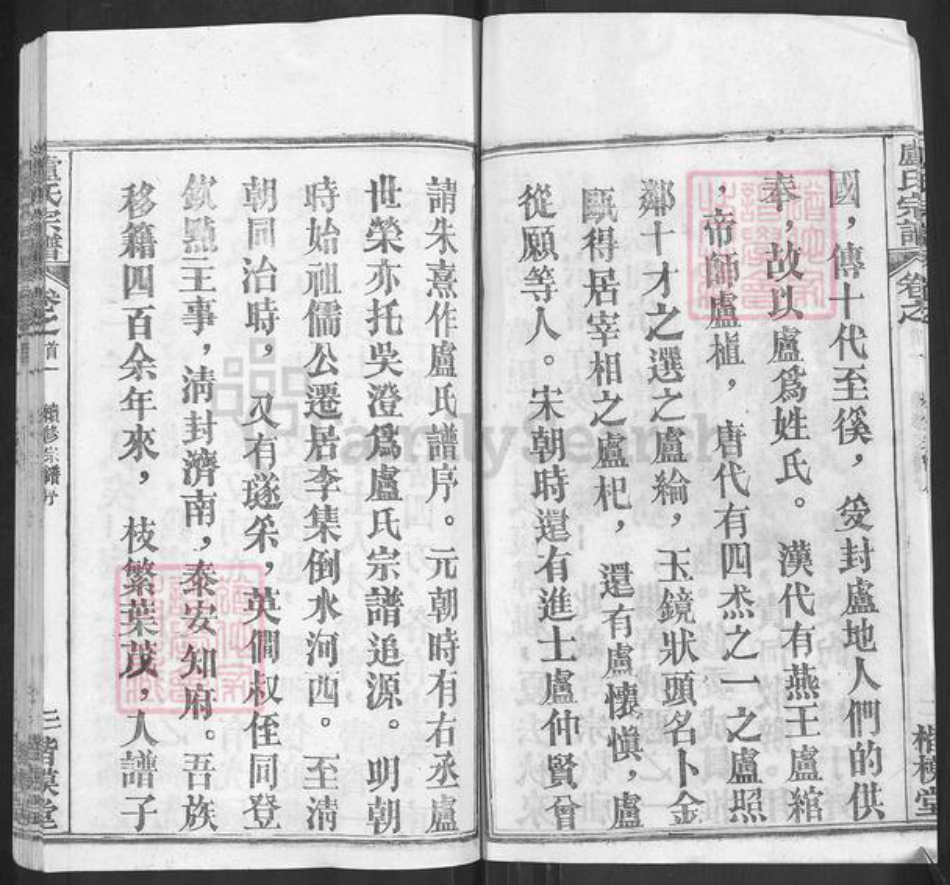 國，傳十代至傒，受封盧地人們的供
奉，故以盧爲姓氏。漢代有燕王盧綰
，帝師盧植，唐代有四杰之一之盧照
鄰十才之選之盧綸，玉鏡狀頭名卜金
甌得居宰相之盧杞，還有盧懷慎，盧
從愿等人。宋朝時還有進士盧仲賢曾
請朱熹作盧氏譜序。元朝時有右丞盧
世榮亦托吳澄爲盧氏宗譜追源。明朝
時始祖儒公遷居李集倒水河西。至清
朝同治時，又有璲釆，英僩叔侄同登
欽點主事，清封濟南，泰安知府。吾族
移籍四百余年來，枝繁葉茂，人譜子
盧氏宗譜
卷之首一
續修宗譜序
三
楷模堂
盧氏宗譜
卷之
楷模堂
FamilySearch